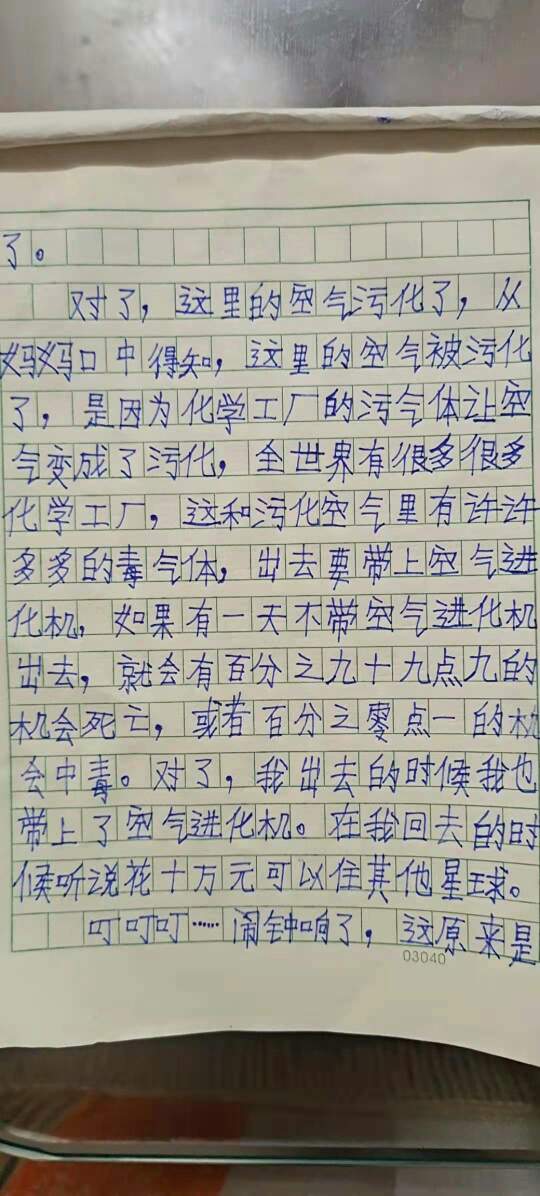 了。
对了，这里的空气污化了，从
妈妈口中得知，这里的空气被污化
了，是因为化学工厂的污气体让空
气变成了污化，全世界有很多很多
化学工厂，这和污化空气里有许许
多多的毒气体，出去要带上空气进
化机，如果有一天不带空气进化机
出去，就会有百分之九十九点九的
机会死亡，或者百分之零点一的机
会中毒。对了，我出去的时候我也
带上了空气进化机。在我回去的时
候听说花十万元可以住其他星球。
叮叮叮……闹钟响了，这原来是
03040